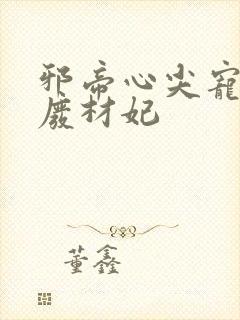 邪帝心尖宠
废材妃
董鑫